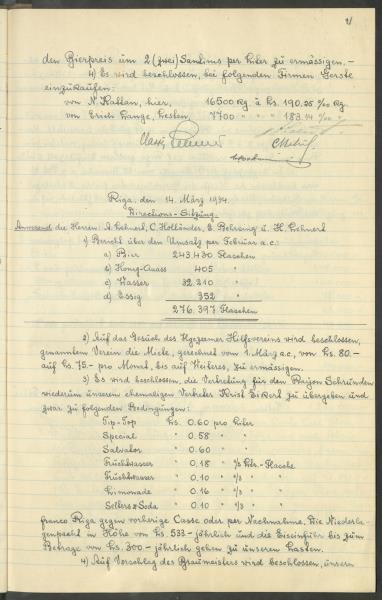 21
den Bierpreis um 2 (zwei) Santims per Liter zu ermässigen. -
4) Es wird beschlossen, bei folgenden Firmen Gerste
einzukaufen:
von N. Kattan, hier, 16500 Kg à Ls. 190.25 %00 Kg
von Erich Lange, Lesten, 7700 " " " 183.14 %00 "
Riga, den 14. März 1934.
Directions-Sitzung.
Anwesend die Herren: A. Lehnert, C. Holländer, E. Behrsing u. H. Lehnert
1) Bericht über den Umsatz per Februar a.c.:
a) Bier 243.430 Flaschen
b) Honig-Quass 405 "
c) Wasser 32.210 "
d) Essig 352 "
276.397 Flaschen
2) Auf das Gesuch des Ilgezeemer Hilfsvereins wird beschlossen,
genanntem Verein die Miete, gerechnet vom 1. März a.c., von Ls. 80.-
auf Ls. 75.- pro Monat, bis auf Weiteres, zu ermässigen.
3) Es wird beschlossen, die Vertretung für den Rayon Schrunden
wiederum unserem ehemaligen Vertreter Krist Eckert zu übergeben und
zwar zu folgenden Bedingungen:
Tip-Top Ls. 0.60 pro Liter
Special " 0.58 " "
Salvator " 0.60 " "
Fruchtwasser " 0.18 " Ltr.-Flasche
Fruchtwasser " 0.10 " "
Limonade " 0.16 " "
Selters & Soda " 0.10 " "
franco Riga gegen vorherige Casse oder per Nachnahme. Die Niederla-
genpacht in Höhe von Ls 533.- jährlich und die Eiseinfuhr bis zum
Betrage von Ls. 300.- jährlich gehen zu unseren Lasten.
4) Auf Vorschlag des Braumeisters wird beschlossen, unsern